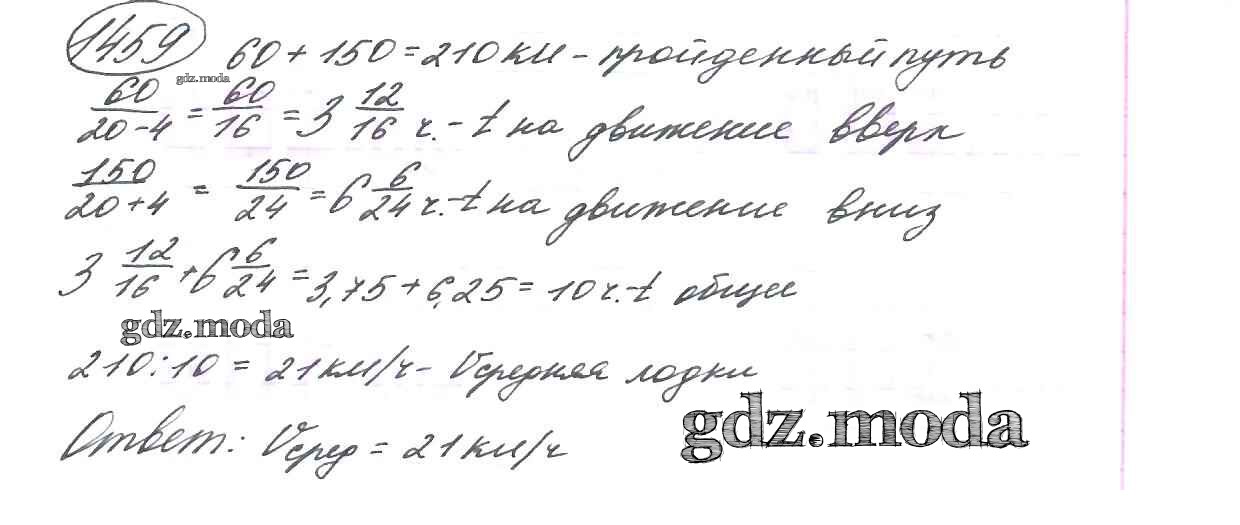 1459 60 + 150 = 210 км - пройденный путь
gdz.moda
60/20-4 = 60/16 = 3 12/16 ч. - t на движение вверх
150/20+4 = 150/24 = 6 6/24 ч. - t на движение вниз
3 12/16 + 6 6/24 = 3,75 + 6,25 = 10 ч. - t общее
gdz.moda
210 : 10 = 21 км/ч - Vсредняя лодки
gdz.moda
Ответ: Vсред = 21 км/ч